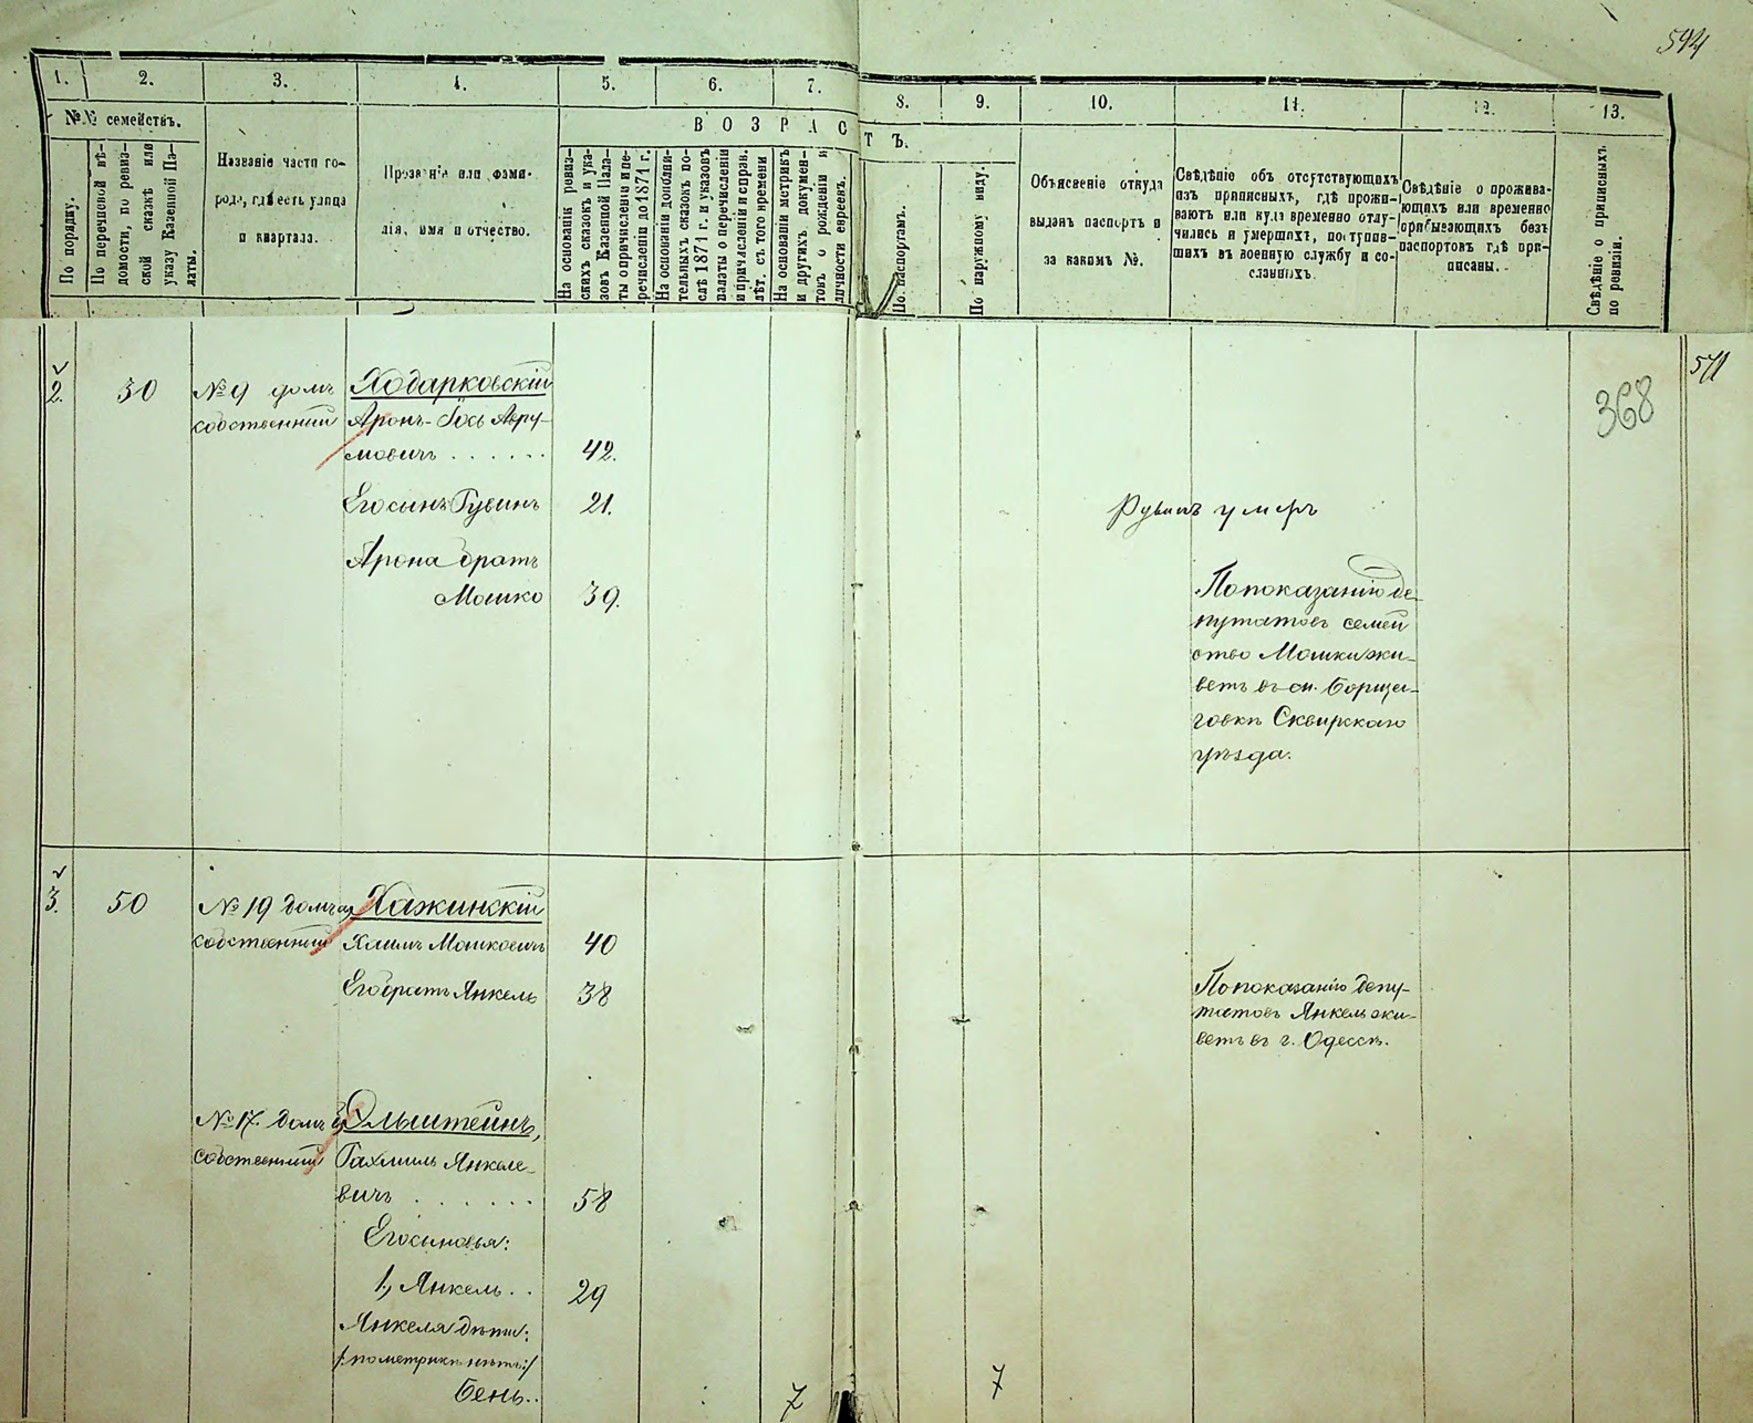 594
1. 2. 3. 4. 5. 6. 7. 8. 9. 10. 11. 12. 13.
№№ семействъ.
По порядку.
По перечневой вѣ-
домости, по ревиз-
ской сказкѣ или
указу Казенной Па-
латы.
Названіе части го-
рода, гдѣ есть улица
и квартала.
Прозваніе или фами-
лія, имя и отчество.
ВОЗРАСТЪ.
На основаніи ревиз-
скихъ сказокъ и ука-
зовъ Казенной Пала-
ты о причисленіи и пе-
речисленіи до 1871 г.
На основаніи дополни-
тельныхъ сказокъ по-
слѣ 1871 г. и указовъ
палаты о перечисленіи
и причисленіи и справ.
лѣт. съ того времени
На основаніи метрикъ
и другихъ докумен-
товъ о рожденіи и
личности евреевъ.
По паспортамъ.
По наружному виду.
Объясненіе откуда
выданъ паспортъ и
за какимъ №.
Свѣдѣніе объ отсутствующихъ
изъ приписныхъ, гдѣ прожи-
ваютъ или куда временно отлу-
чились и умершихъ, поступив-
шихъ въ военную службу и со-
сланныхъ.
Свѣдѣніе о прожива-
ющихъ или временно
прибывающихъ безъ
паспортовъ гдѣ при-
писаны.
Свѣдѣніе о приписныхъ
по ревизіи.
571
368
2. 30 №9 домъ Ходарковскій
собственный Аронъ-Іось Авру-
мовичъ . . . . . . 42.
Его сынъ Рувинъ 21. Рувинъ умеръ
Арона братъ
Мошко 39.
По показанію де-
путатовъ семей
ство Мошки жи-
ветъ въ м. Борща-
говкѣ Сквирскаго
уѣзда.
3. 50 №19 домъ Хажинскій
собственный Хаимъ Мошковичъ 40
Его братъ Янкель 38
По показанію депу-
татовъ Янкель жи-
ветъ въ г. Одессѣ.
№17. домъ Ольштейнъ,
собственный Рахмиль Янкеле-
вичъ . . . . . . . 58
Его сыновья:
1, Янкель . . 29
Янкеля дѣти:
/:по метрикѣ нѣтъ:/
Бень.. 7 7